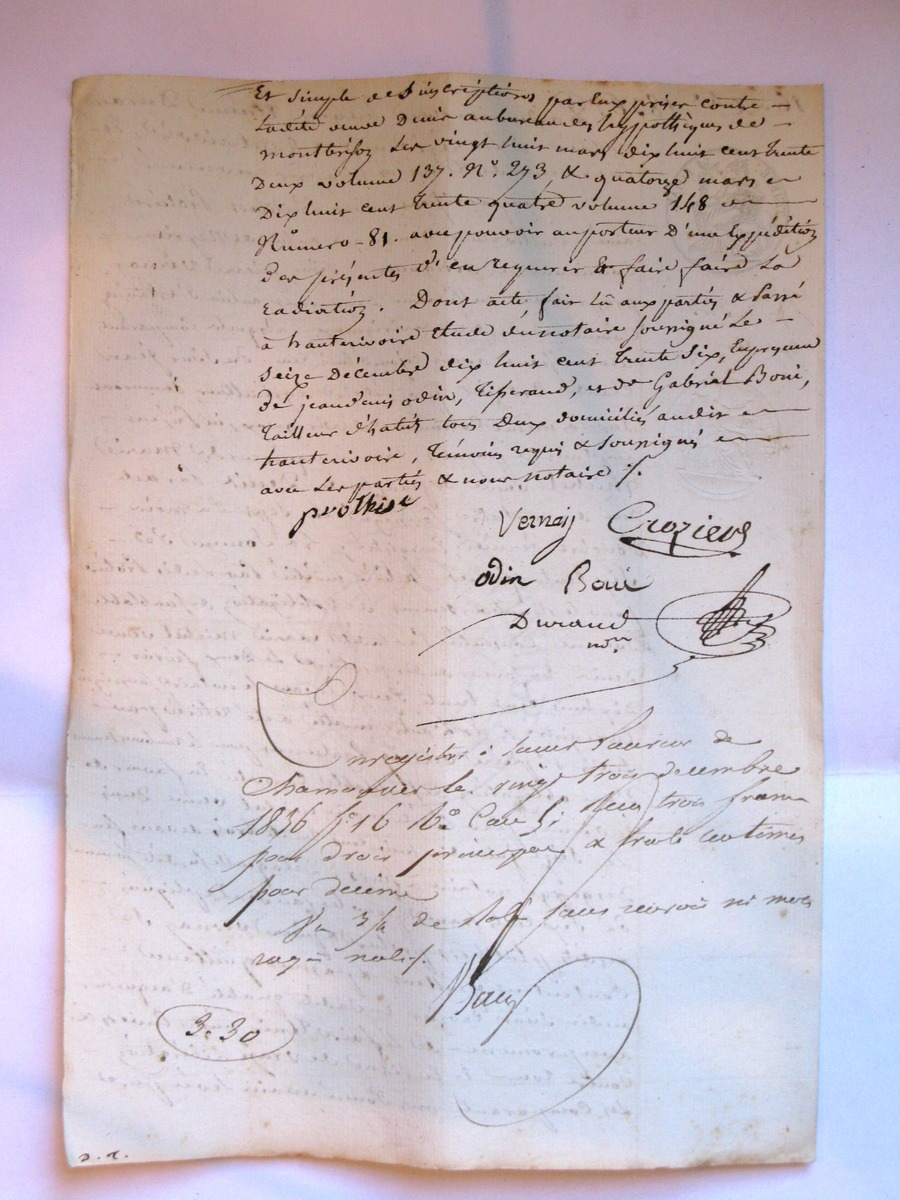 Et simple de l'inscriptions par eux prises contre
Ladite veuve Denis au bureau des hypothèques de
montbrison Les vingt huit mars dix huit cent trente
Deux volume 137. N°. 273 & quatorze mars
Dix huit cent trente quatre volume 148
Numero 81. avec pouvoir au porteur D'une Expédition
Des présentes d'en requerir & faire faire La
radiation. Dont acte fait lû aux partiés & Passé
à hauterivoire Etude du notaire soussigné Le
seize Décembre dix huit cent trente six, En presence
de jean denis odin, Tisserand, et de Gabriel Boui,
Tailleur d'habits tous Deux domiciliés audit
hauterivoire, Témoins requis & soussignés
avec Les partiés & nous notaire ./.
prothiere
Vernay Croziers
odin Boui
Durand
nore
Enregistré à Saint Laurent de
Chamousset le vingt trois decembre
1836 f° 16 V° Case 5; Reçu trois francs
pour droit principal & trente centimes
pour decime
de sans renvoi ni mots
rayés nuls ./.
3. 30
D. R.